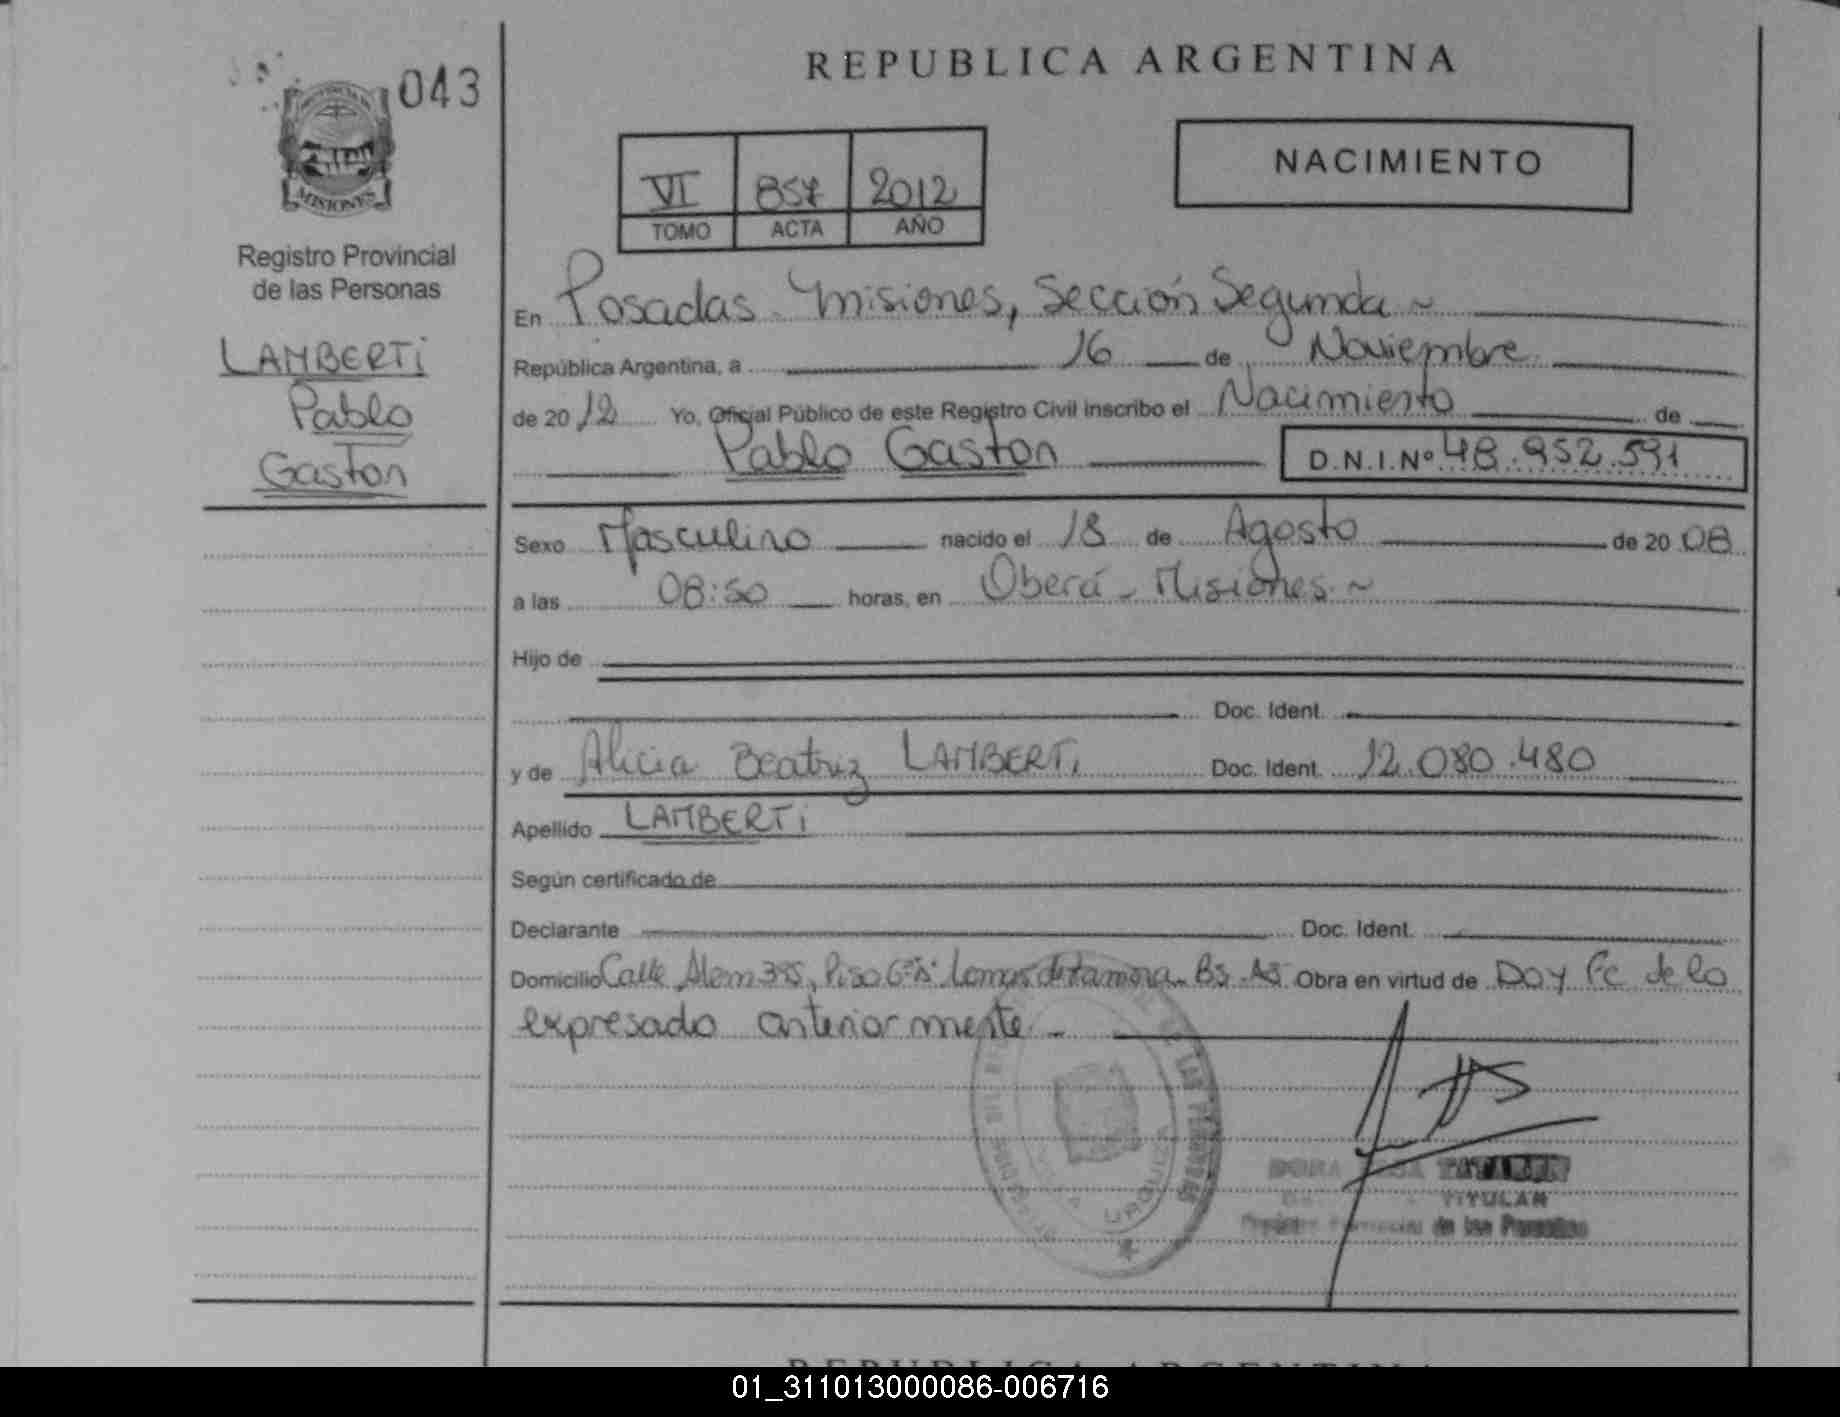 REPUBLICA ARGENTINA
043
NACIMIENTO
PROVINCIA DE
MISIONES
VI 857 2012
TOMO ACTA AÑO
Registro Provincial
de las Personas
LAMBERTi
Pablo
Gaston
En Posadas - Misiones, Sección Segunda ~
República Argentina, a 16 de Noviembre
de 2012 Yo, Oficial Público de este Registro Civil inscribo el Nacimiento de
Pablo Gaston D.N.I.Nº 48.952.591
Sexo Masculino nacido el 18 de Agosto de 2008
a las 08:50 horas, en Oberá - Misiones ~
Hijo de
Doc. Ident.
y de Alicia Beatriz LAMBERTi Doc. Ident. 12.080.480
Apellido LAMBERTi
Según certificado de
Declarante Doc. Ident.
Domicilio Calle Alem 385, Piso 6º Lomas de Zamora - Bs - As Obra en virtud de Doy Fe de lo
expresado anteriormente -
DE LAS PERSONAS
DORA TATAREN
TITULAR
de las Personas
REPUBLICA ARGENTINA
01_311013000086-006716